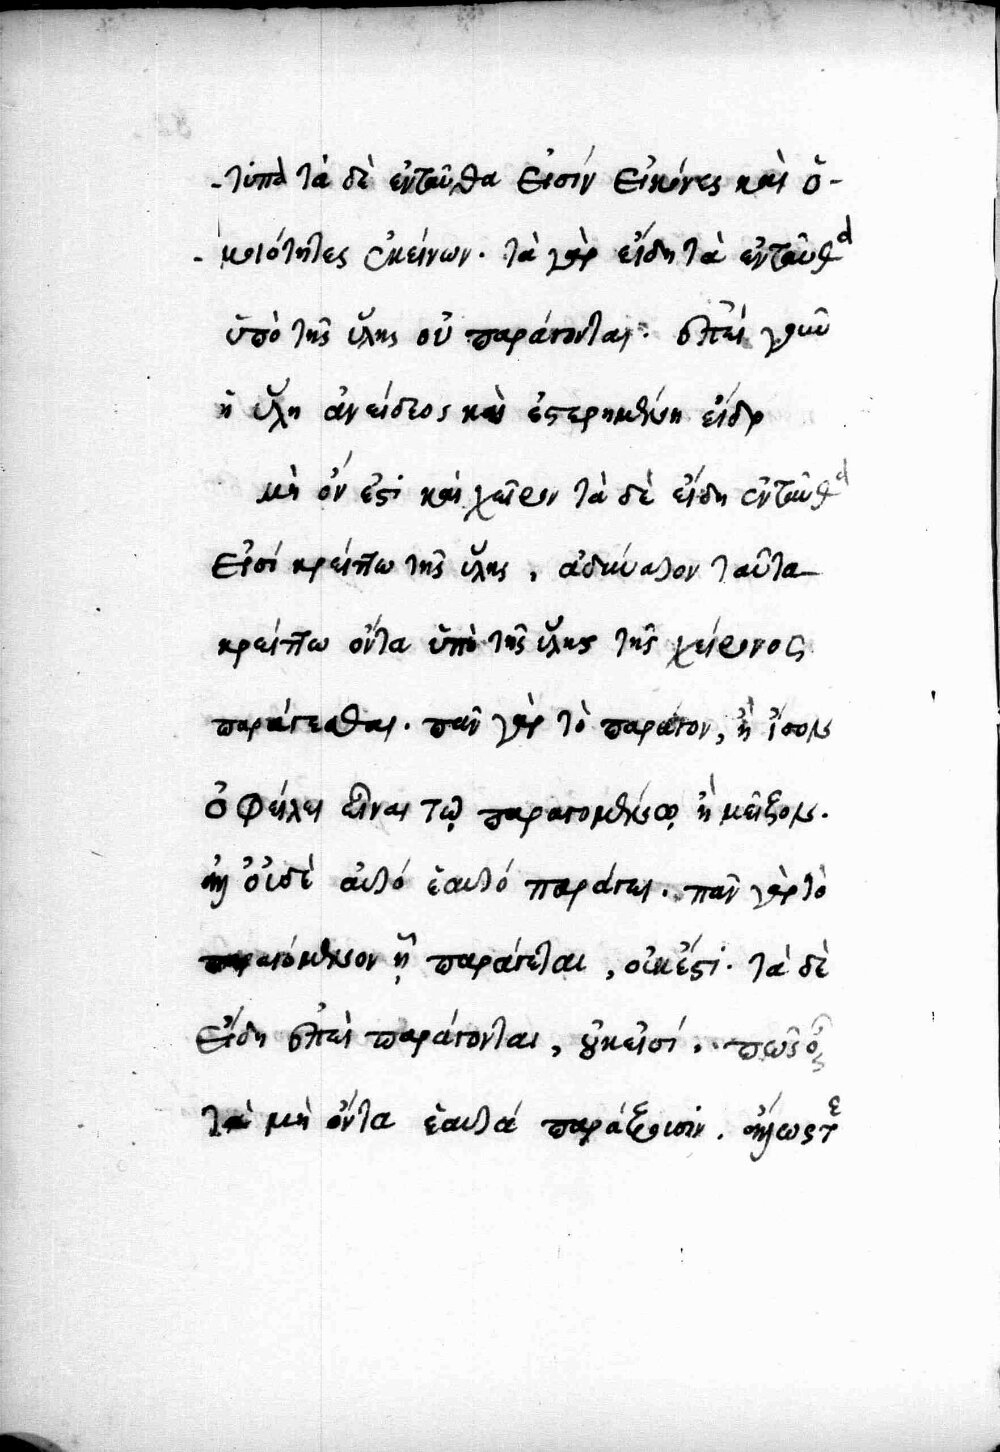 -τυπα τὰ δὲ ἐνταῦθα εἰσὶν εἰκόνες καὶ ὁ-
-μοιότητες ἐκείνων. τὰ γὰρ εἴδη τὰ ἐνταῦθα
ὑπὸ τῆς ὕλης οὐ παράγονται. ἐπεὶ γοῦν
ἡ ὕλη ἀνείδεος καὶ ἐστερημένη εἴδους
μὴ ὄν ἐστι καὶ χεῖρον τὰ δὲ εἴδη ἐνταῦθα
εἰσὶ κρείττω τῆς ὕλης, ἀδύνατον ταῦτα
κρείττω ὄντα ὑπὸ τῆς ὕλης τῆς χείρονος
παράγεσθαι. πᾶν γὰρ τὸ παράγον, ἢ ἴσον
ὀφείλει εἶναι τῷ παραγομένῳ ἢ μεῖζον.
ἀλλ' οὐδὲ αὐτὸ ἑαυτὸ παράγει. πᾶν γὰρ τὸ
παραγόμενον ᾗ παράγεται, οὐκ ἔστι. τὰ δὲ
εἴδη ἐπεὶ παράγονται, οὐκ εἰσί. πῶς οὖν
τὰ μὴ ὄντα ἑαυτὰ παράξουσιν. ἄλλως τε